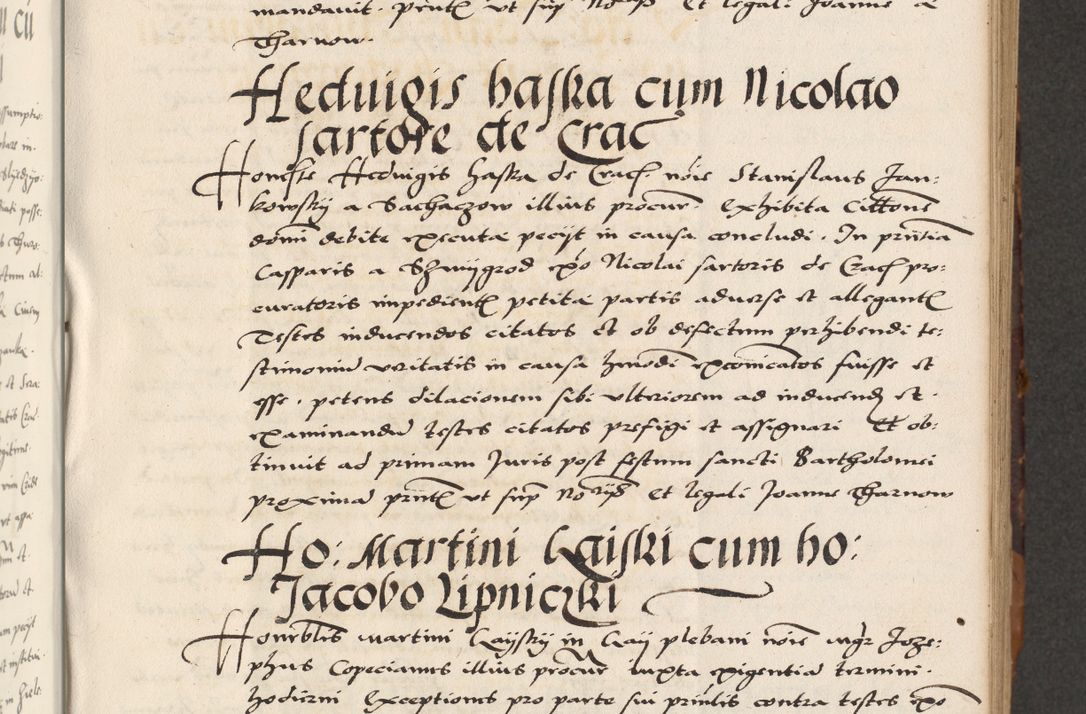 mandavit. prñt ut sup Et legali Joanne a
Tharnow.
Heduigis haska cum Nicolao
sartore de Crac
Honeste Heduigis haska de Crac nōie Stanislaus Jan:
kowskÿ a Sachaczow illius procur. Exhibita Cittone
domi debite executa pecÿt in causa concludi. In prñtia
Casparis a Szwÿgrod exo Nicolai sartoris de Crac pro:
curatoris impedient petita partis aduerse et allegant
Testes inducendos citatos et ob defectum perhibendi te:
stimoniū veritatis in causa hmōdi excōicatos fuisse et
esse. petens dilacionem sibi vlteriorem ad inducend et
examinandū testes citatos prefigi et assignari Et ob:
tinuit ad primam Juris post festum sancti Bartholomei
proximā prñt ut sup Et legali Joanne Tharnow
Ho: Martini Gaiski cum ho:
Jacobo Lipniczki
Honrblis martini Gayskÿ in Gaÿ plebani nōie mgr Joze:
phus Copecianus illius procur iuxta exigentiā termini
hodierni Exceptiones pro parte sui prinlis contra testes exo